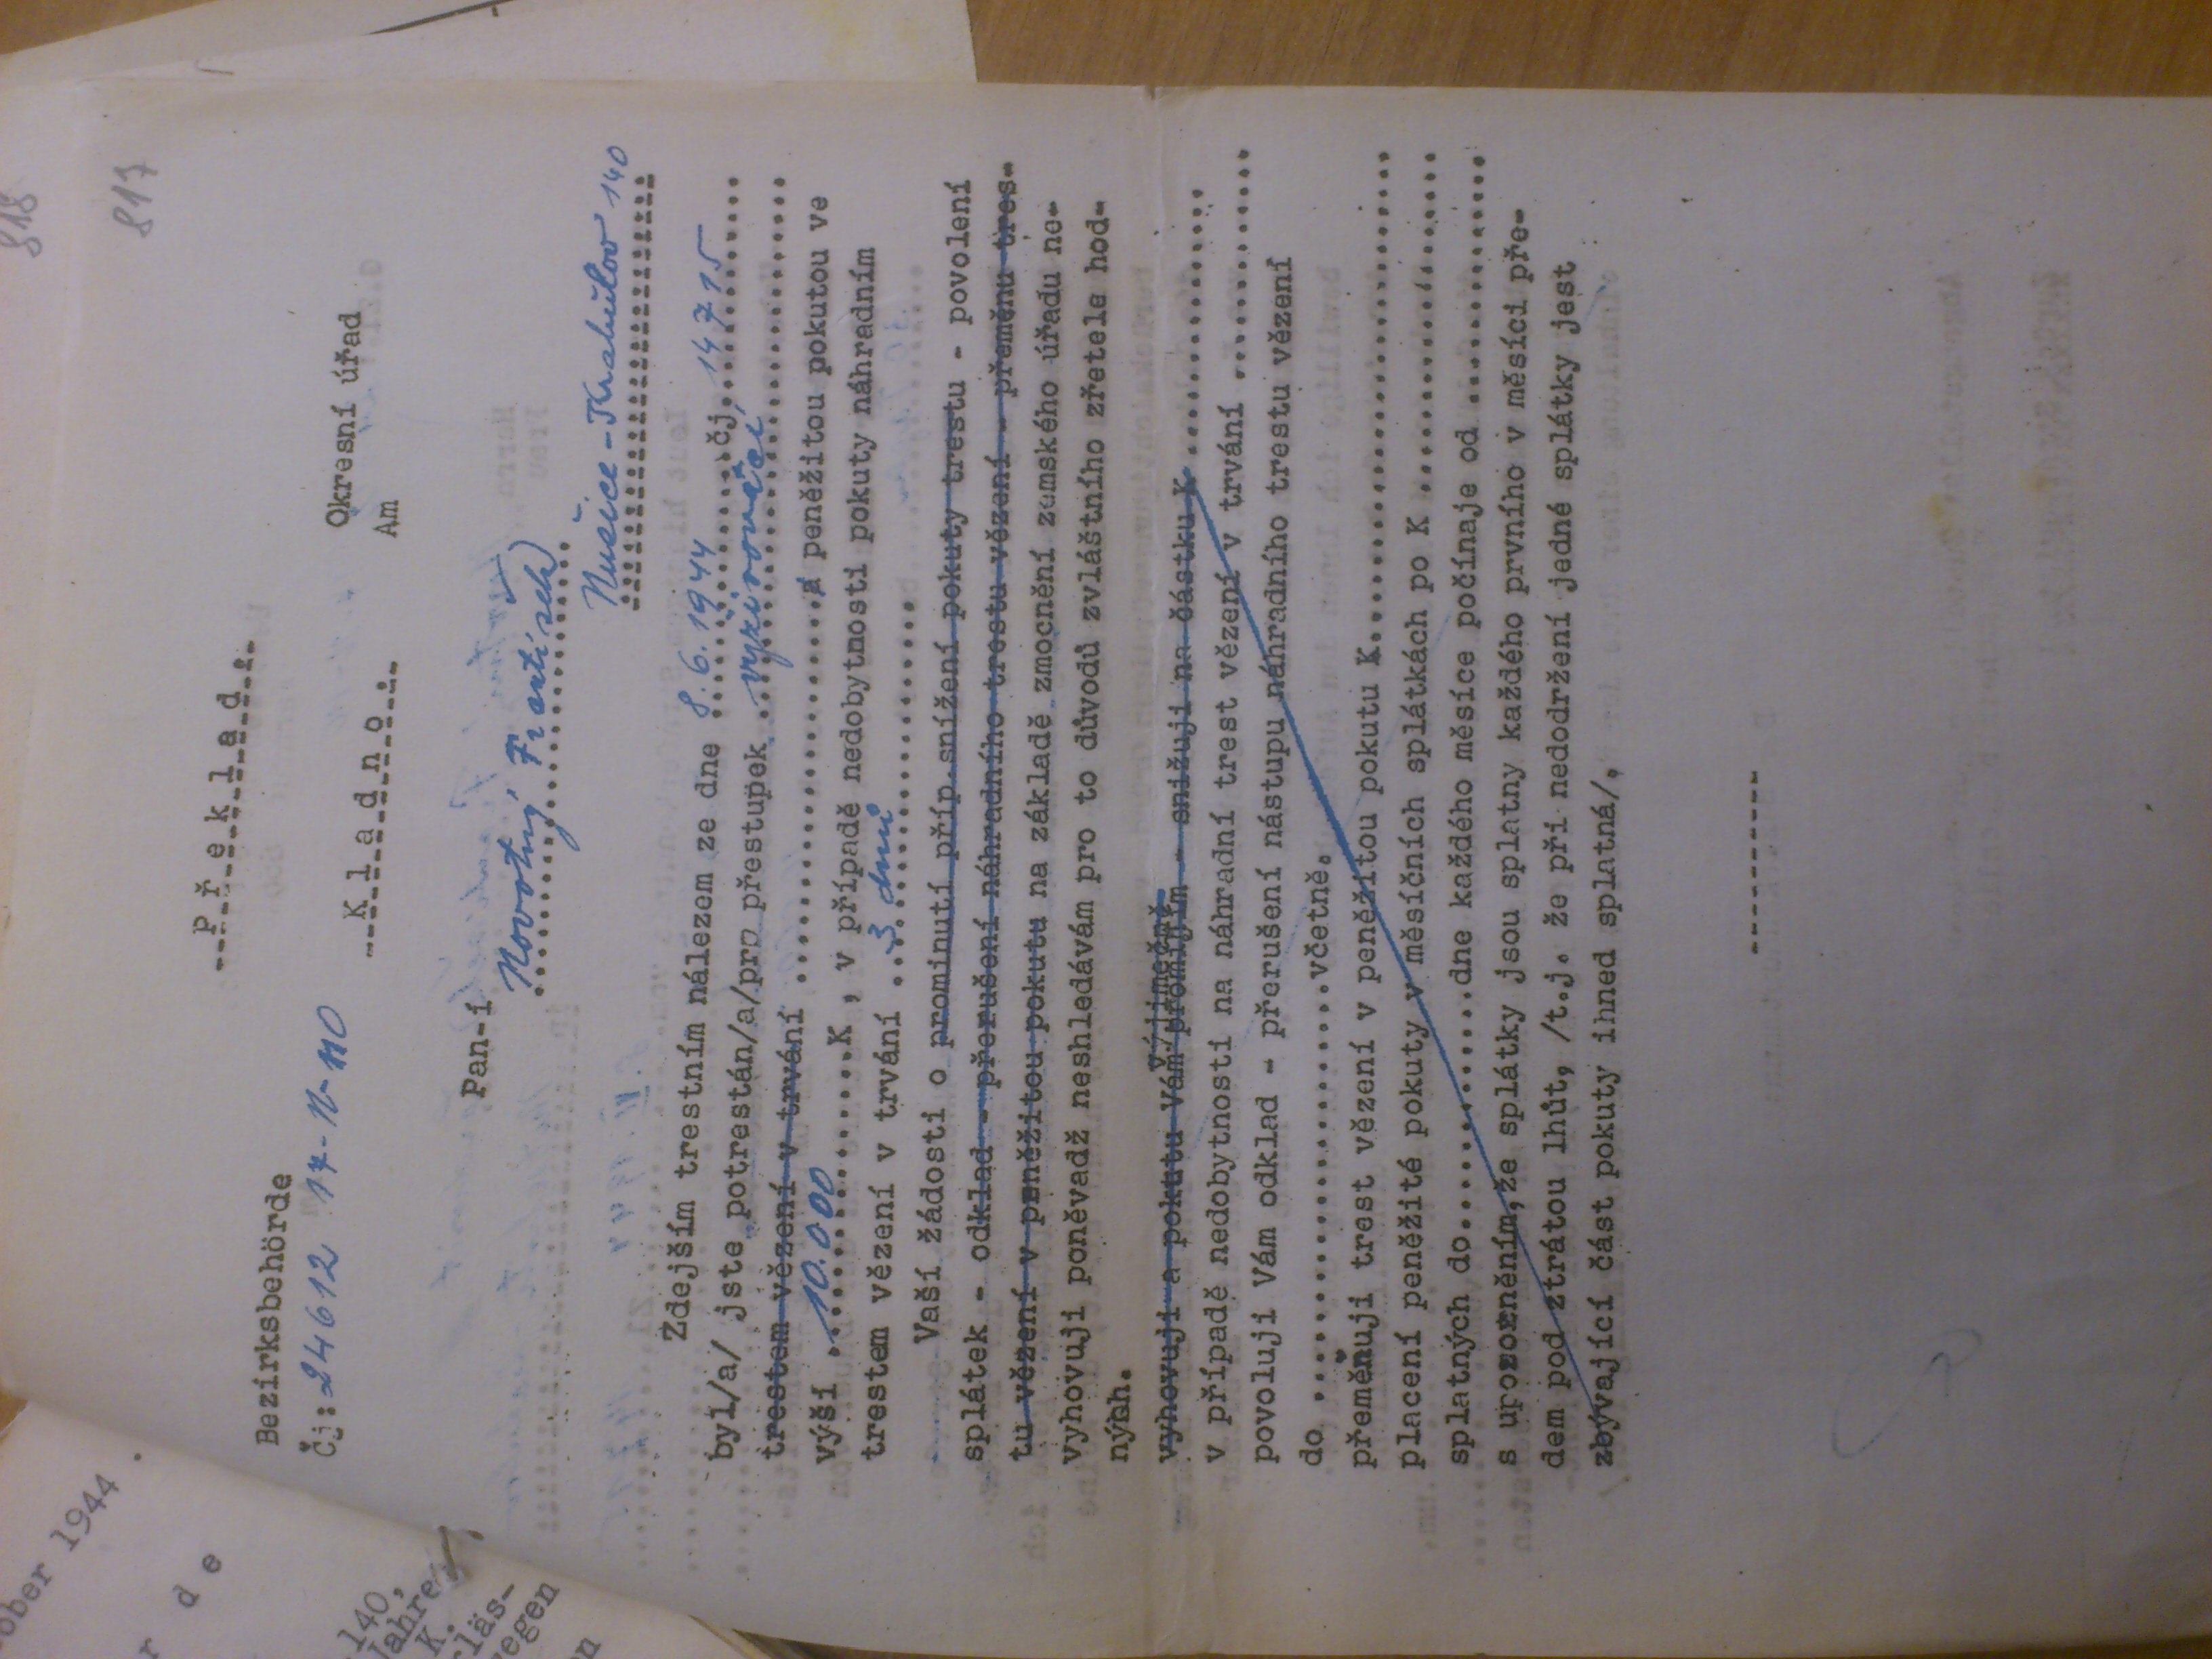 ober 1944 .
r d e
140,
Jahre
K.
rläs-
wegen
n
818
817
P ř e k l a d .
Bezirksbehörde
Čj: 24612 17-N-110
Okresní úřad
K l a d n o .
Am
Pan-í
Novotný František
Nučice-Krahulov 140
Zdejším trestním nálezem ze dne 8.6.1944 čj. 14715
byl/a/ jste potrestán/a/pro přestupek vyživovací
trestem vězení v trvání ..................... a peněžitou pokutou ve
výši 10.000 K , v případě nedobytnosti pokuty náhradním
trestem vězení v trvání 3 dnů
Vaší žádosti o prominutí příp.snížení pokuty trestu - povolení
splátek - odklad - přerušení náhradního trestu vězení - přeměnu tres-
tu vězení v peněžitou pokutu na základě zmocnění zemského úřadu ne-
vyhovuji poněvadž neshledávám pro to důvodů zvláštního zřetele hod-
ných.
výjimečně
vyhovuji a pokutu Vám promíjím - snižuji na částku K ...............
v případě nedobytnosti na náhradní trest vězení v trvání .............
povoluji Vám odklad - přerušení nástupu náhradního trestu vězení
do ......................včetně.
přeměňuji trest vězení v peněžitou pokutu K..........................
placení peněžité pokuty v měsíčních splátkách po K ..................
splatných do.............dne každého měsíce počínaje od ..............
s upozorněním,že splátky jsou splatny každého prvního v měsíci pře-
dem pod ztrátou lhůt, /t.j. že při nedodržení jedné splátky jest
zbývající část pokuty ihned splatná/.
----------